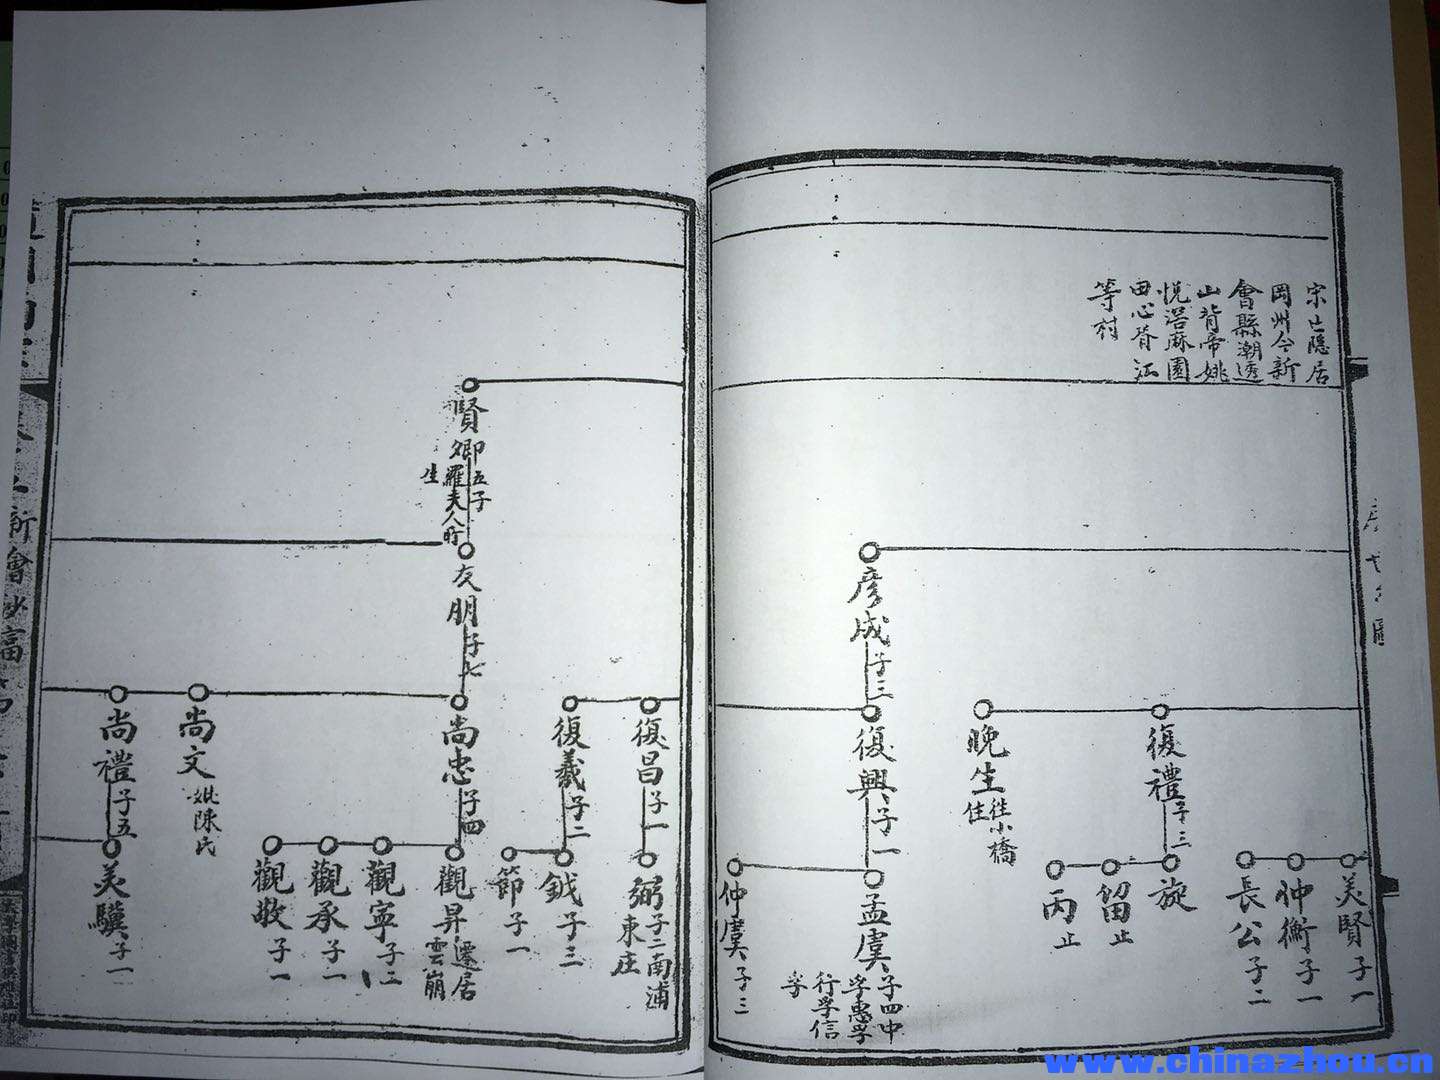 宋亡隱居
岡州今新
會縣潮透
山背帝姚
悦滘麻園
田心脊江
等村
彦成
子三
復禮
子三
晚生
往小橋
住
復興
子一
美賢
子一
仲衡
子一
長公
子二
旋
留
止
丙
止
孟虞
子四中
孚惠孚
行孚信
孚
仲虞
子三
賢卿
五子
羅夫人所
生
友朋
子七
復昌
子一
復羲
子二
尚忠
子四
尚文
妣陳氏
尚禮
子五
弼
子二南浦
東庄
鉞
子三
節
子一
觀昇
遷居
雲崩
觀寧
子二
觀承
子一
觀敬
子一
美驥
子一
新會沙富
www.chinazhou.cn